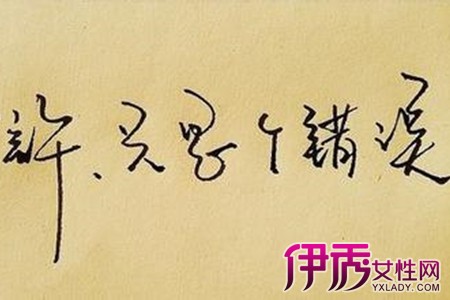 許、只是个错误
伊秀女性网
YXLADY.COM